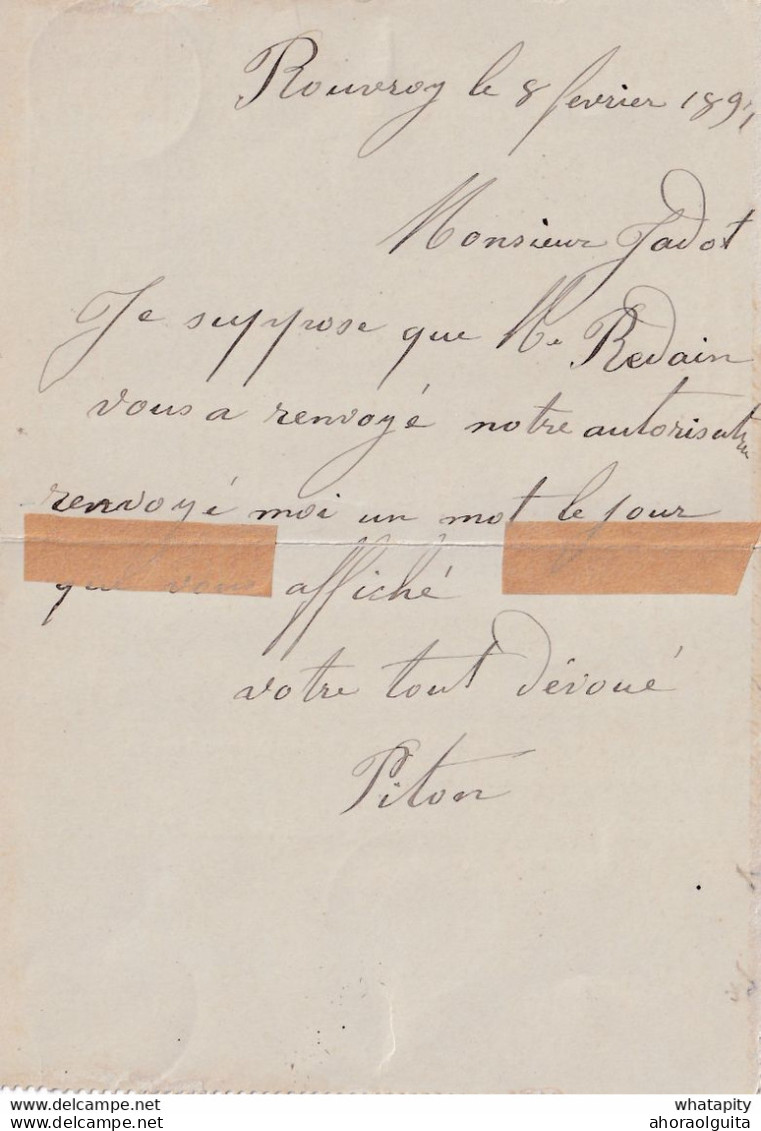 Rouvroy le 8 février 1891
Monsieur Jadot
Je suppose que Mr Redain
vous a renvoyé notre autorisation
renvoyé moi un mot le jour
que vous affiché
votre tout dévoué
Piton
delcampe.net
whatapity
delcampe.net
ahoraolguita